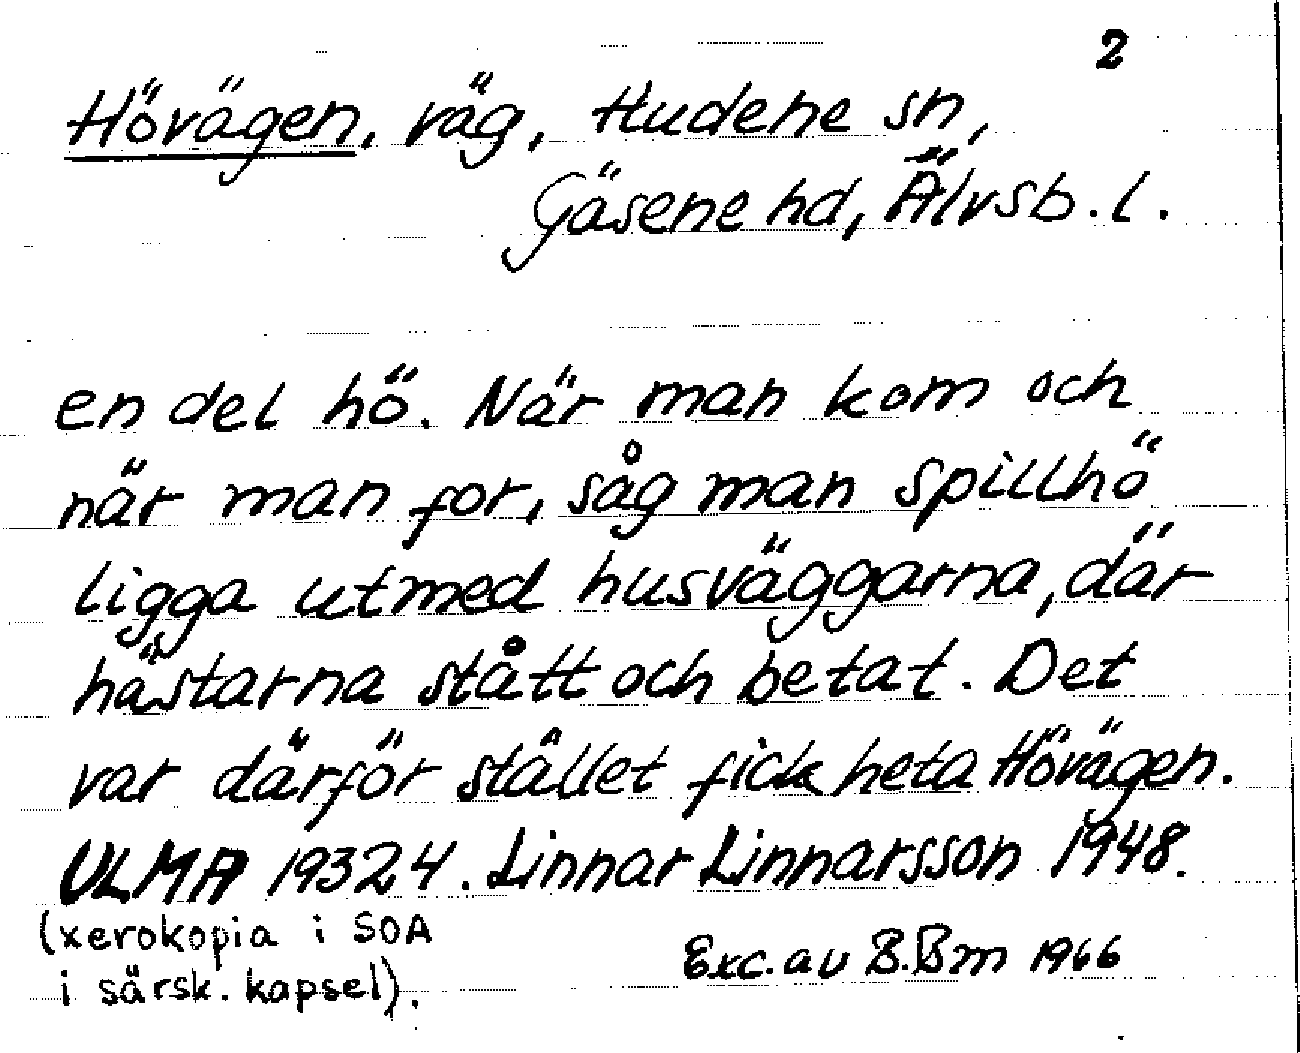 2
Hövägen, väg, Hudene sn,
Gäsene hd, Älvsb. l.
en del hö. När man kom och
när man for, såg man spillhö
ligga utmed husväggarna, där
hästarna stått och betat. Det
var därför stället fick heta Hövägen.
ULMA 19324. Linnar Linnarsson 1948.
(xerokopia i SOA
i särsk. kapsel).
Exc. av B. Bm 1966